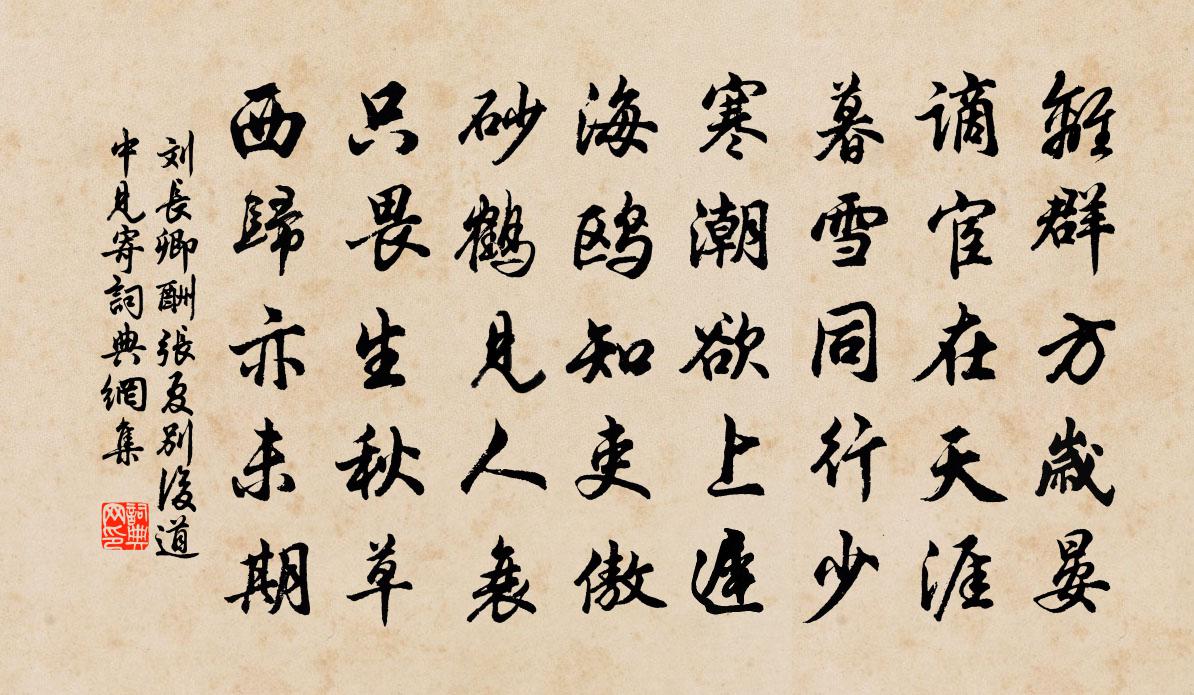 離群方歲晏
謫宦在天涯
暮雪同行少
寒潮欲上遲
海鸥知吏傲
砂鶴見人衰
只畏生秋草
西歸亦未期
刘長卿酬張夏別後道
中見寄詞典網集
詞典
网印